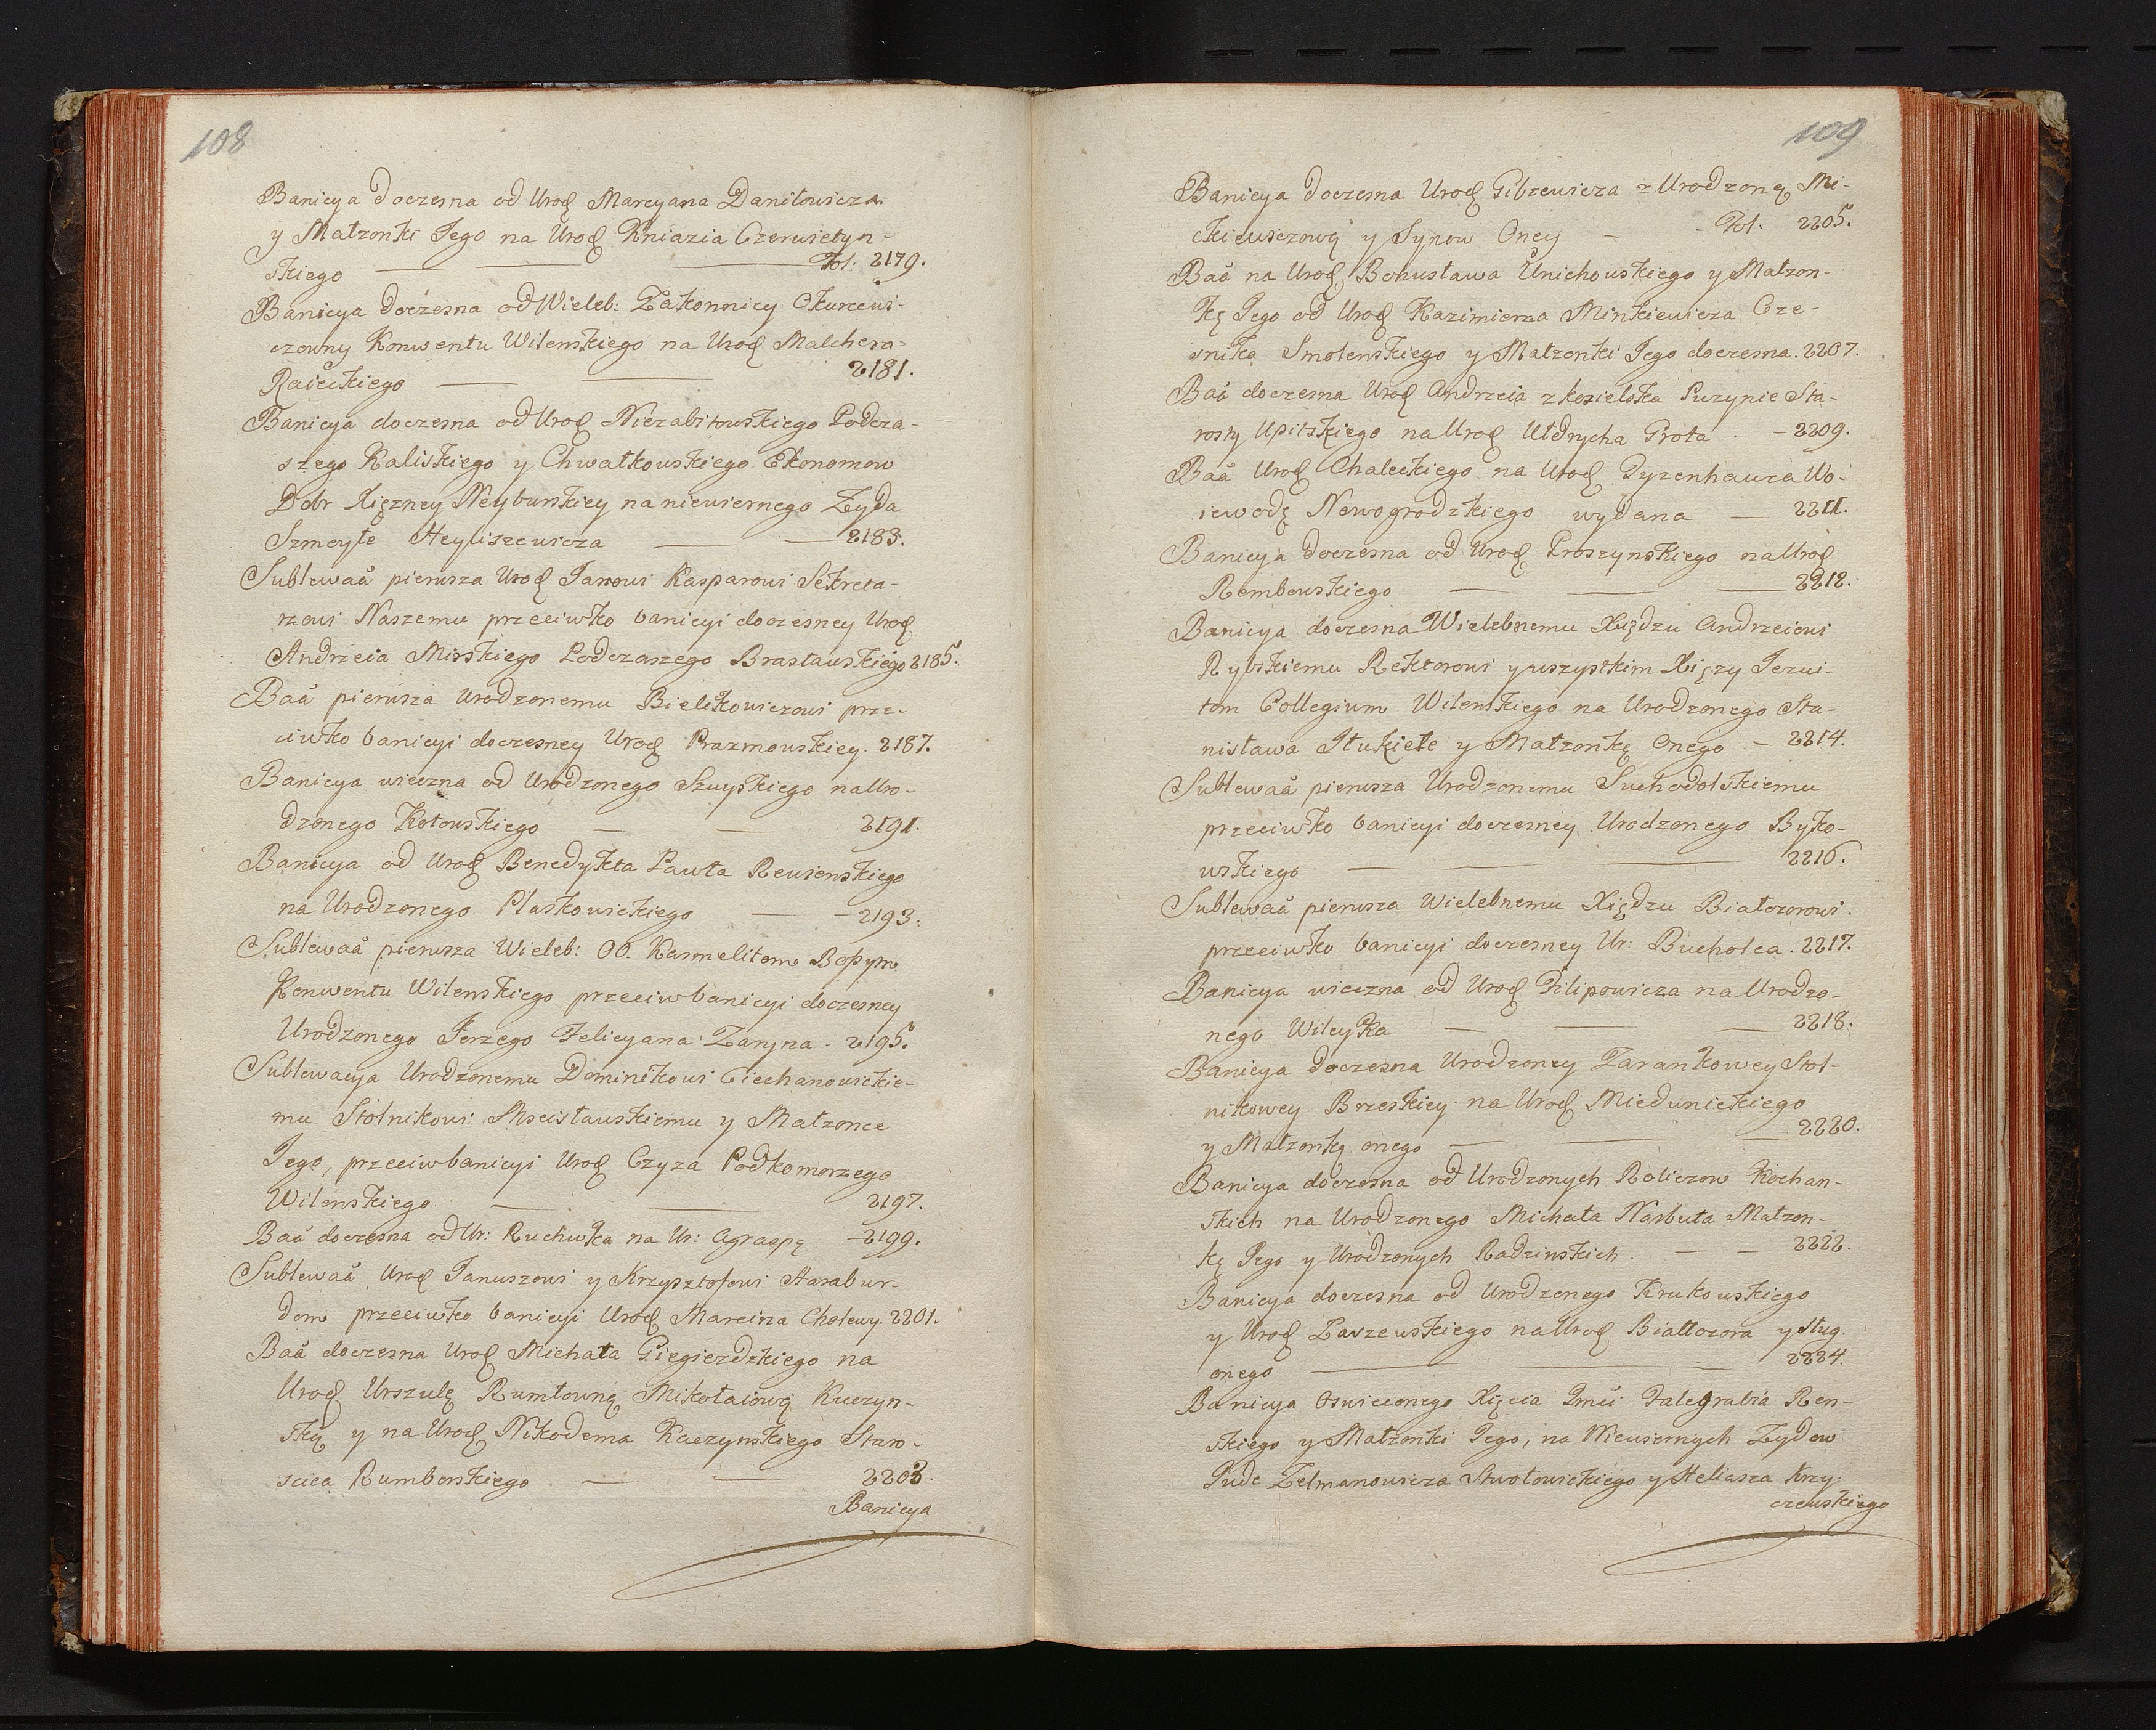 108
Banicya doczesna od Urod Marcyana Daniłowicza
y Małzonki Jego na Urod Kniazia Czerwietyn-
skiego Fol: 2179.
Banicya doczesna od Wieleb: Zakonnicy Okurcewi-
czowny Konwentu Wilenskiego na Urod Malchera
Raieckiego 2181.
Banicya doczesna od Urod Niezabitowskiego Podcza-
szego Kaliskiego y Chwałkowskiego Ekonomow
Dobr Xięzney Neyburskiey na niewiernego Zyda
Szmoyłe Heyliszewicza 2183.
Sublewaã pierwsza Urod Janowi Kasparowi Sekreta-
rzowi Naszemu przeciwko banicyi doczesney Urod
Andrzeia Mirskiego Podczaszego Brasławskiego 2185.
Baã pierwsza Urodzonemu Bielikowiczowi prze-
ciwko banicyi doczesney Urod Prazmowskiey. 2187.
Banicya wieczna od Urodzonego Szuyskiego na Uro-
dzonego Kotowskiego 2191.
Banicya od Urod Benedykta Pawła Rewienskiego
na Urodzonego Plaskowickiego 2193.
Sublewaã pierwsza Wieleb: OO. Karmelitom Bossym
Konwentu Wilenskiego przeciw banicyi doczesney
Urodzonego Jerzego Felicyana Zaryna. 2195.
Sublewacya Urodzonemu Dominikowi Ciechanowickie-
mu Stolnikowi Mscisławskiemu y Małzonce
Jego, przeciw banicyi Urod Czyza Podkomorzego
Wilenskiego 2197.
Baã doczesna od Ur: Ruchwka na Ur: Agraspę 2199.
Sublewaã Urod Januszowi y Krzysztofowi Harabur-
dom przeciwko banicyi Urod Marcina Cholewy. 2201.
Baã doczesna Urod Michała Giegierdzkiego na
Urod Urszulę Rumłownę Mikołaiową Kuczyn-
ską y na Urod Nikodema Kaczynskiego Staro-
scica Rumborskiego 2203.
Banicya
109
Banicya doczesna Urod Gibzewicza z Urodzoną Mi-
ckiewiczową y Synow Oney Fol: 2205.
Baã na Urod Bohusława Unichowskiego y Małzon-
kę Jego od Urod Kazimierza Minkiewicza Cze-
snika Smolenskiego y Małzonki Jego doczesna. 2207.
Baã doczesna Urod Andrzeia z Kozielska Puzynie Sta-
rosty Upitskiego na Urod Uldrycha Grota 2209.
Baã Urod Chaleckiego na Urod Tyzenhauza Wo-
iewodę Nowogrodzkiego wydana 2211.
Banicya doczesna od Urod Proszynskiego na Urod
Rembowskiego 2212.
Banicya doczesna Wielebnemu Xiędzu Andrzeiowi
Rybskiemu Rektorowi y wszystkim Xięzy Jezui-
tom Collegium Wilenskiego na Urodzonego Sta-
nisława Jtukiełe y Małzonkę Onego 2214.
Sublewaã pierwsza Urodzonemu Suchodolskiemu
przeciwko banicyi doczesney Urodzonego Byko-
wskiego 2216.
Sublewaã pierwsza Wielebnemu Xiędzu Białozorowi
przeciwko banicyi doczesney Ur: Bucholca. 2217.
Banicya wieczna od Urod Filipowicza na Urodzo-
nego Wileyka 2218.
Banicya doczesna Urodzoney Tarankowey Stol-
nikowey Brzeskiey na Urod Miedunickiego
y Małzonkę onego 2220.
Banicya doczesna od Urodzonych Roliczow Kochan-
skich na Urodzonego Michała Narbuta Małzon-
kę Jego y Urodzonych Radzinskich. 2222.
Banicya doczesna od Urodzonego Krukowskiego
y Urod Zaszewskiego na Urod Białłozora y sług
onego 2224.
Banicya Oswieconego Xięcia Jmći Falcgrabia Ren-
skiego y Małzonki Jego, na Niewiernych Zydow
Jude Zelmanowicza Słwołowickiego y Heliasza Krzy-
czewskiego